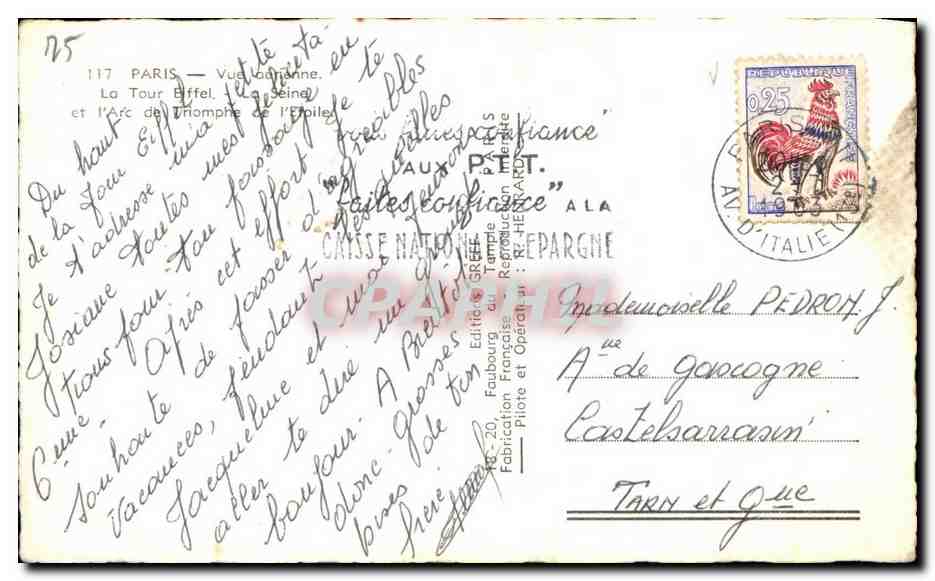 25
117 PARIS — Vue aérienne.
La Tour Eiffel, La Seine
et l'Arc de Triomphe de l'Etoile
Du haut
de la Tour Eiffel petite
t'adresse mia
Je toutes mes félicita-
Josiane ton passage en
tions pour
6ème. Après cet effort je te
souhaite de passer d'agréables
vacances, pendant lesquelles
Jacqueline et moi
aller te dire un
bonjour. A Bientôt
donc. grosses
bises de ton
frère
Editions GREFF
18 - 20, Faubourg du Temple PARIS
Fabrication Française Reproduction Interdite
Pilote et Opérateur : R. HENRARD
confiance"
AUX P.T.T.
"faites confiance"
A LA
CAISSE NATIONALE D'EPARGNE
CPARAMA
REPUBLIQUE FRANCAISE
0,25
PARIS
1963
AV. D'ITALIE (13e)
Mademoiselle PEDRON. J.
Aue de Gascogne
Castelsarrasin
TARN et Gne